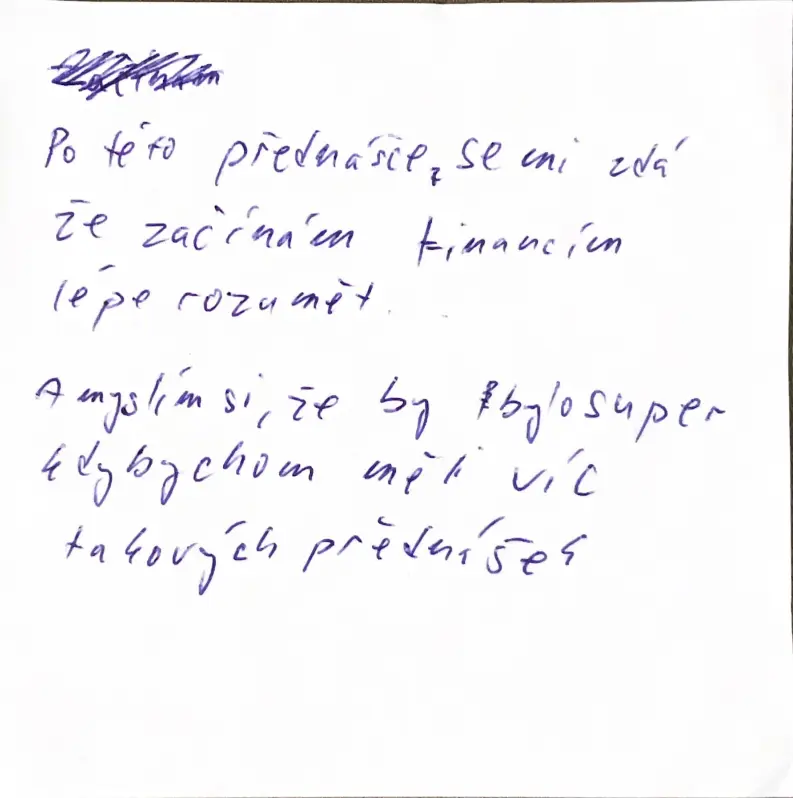 Po této přednášce, se mi zdá
že začínám financím
lépe rozumět.
A myslím si, že by bylo super
kdybychom měli víc
takových přednášek